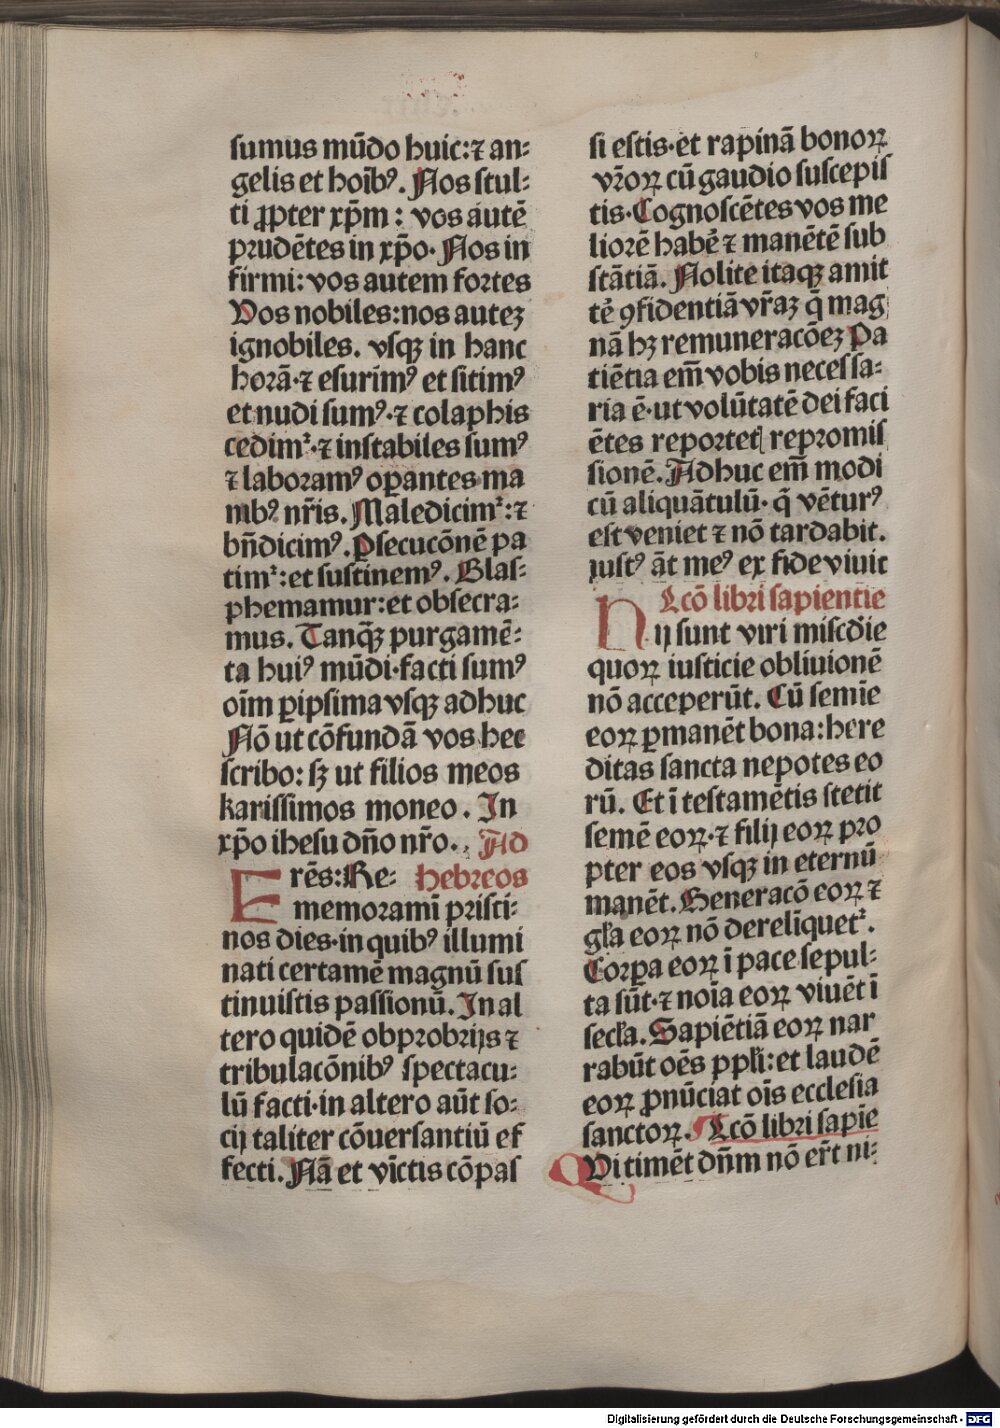 sumus mūdo huic:⁊ an⸗
gelis et hoīb⁹. Nos stul⸗
ti ꝓpter xp̄m : vos autē
prudētes in xp̄o. Nos in
firmi: vos autem fortes
Vos nobiles:nos auteꝫ
ignobiles. vsqꝫ in hanc
horā.⁊ esurim⁹ et sitim⁹
et nudi sum⁹.⁊ colaphis
cedimᷣ.⁊ instabiles sum⁹
⁊ laboram⁹ oꝑantes ma
nib⁹ nr̄is. Maledicimᷣ:⁊
bn̄dicim⁹. Ꝑsecucōnē pa
timᷣ:et sustinem⁹. Blas⸗
phemamur:et obsecra⸗
mus. Tanqꝫ purgamē⸗
ta hui⁹ mūdi.facti sum⁹
oīm ꝑipsima vsqꝫ adhuc
Nō ut cōfundā vos hec
scribo: sꝫ ut filios meos
karissimos moneo. In
xp̄o ihesu dn̄o nr̄o. Ad
hebreos
Erēs:Re⸗
memoramī pristi⸗
nos dies.in quib⁹ illumi
nati certamē magnū sus
tinuistis passionū. In al
tero quidē obprobrijs ⁊
tribulacōnib⁹ spectacu⸗
lū facti.in altero aūt so⸗
cij taliter cōuersantiū ef
fecti. Nā et vīctis cōpas
si estis.et rapinā bonoꝝ
vr̄oꝝ cū gaudio suscepis
tis.Cognoscētes vos me
liorē habē ⁊ manētē sub
stātiā. Nolite itaqꝫ amit
tē ꝯfidentiā vr̄aꝫ q̄ mag
nā hꝫ remuneracōeꝫ Pa
tiētia em̄ vobis necessa⸗
ria ē.ut volūtatē dei faci
ētes reportet͛ repromis
sionē. Adhuc em̄ modi
cū aliquātulū. q̄ vētur⁹
est veniet ⁊ nō tardabit.
iust⁹ āt me⁹ ex fide viuit
Lcō libri sapientie
Hij sunt viri misc̄die
quoꝝ iusticie obliuionē
nō acceperūt. Cū semīe
eoꝝ ꝑmanēt bona:here
ditas sancta nepotes eo
rū. Et ī testamētis stetit
semē eoꝝ.⁊ filij eoꝝ pro
pter eos vsqꝫ in eternū
manēt. Generacō eoꝝ ⁊
gl̄a eoꝝ nō derelīquetᷣ.
Corꝑa eoꝝ ī pace sepul⸗
ta sūt.⁊ noīa eoꝝ viuēt ī
secl̄a. Sapiētiā eoꝝ nar
rabūt oēs ppl̄i:et laudē
eoꝝ ꝓnūciat oīs ecclesia
sanctoꝝ. Lcō libri sapīe
QVi timēt dn̄m nō er̄t ni⸗
Digitalisierung gefördert durch die Deutsche Forschungsgemeinschaft - DFG